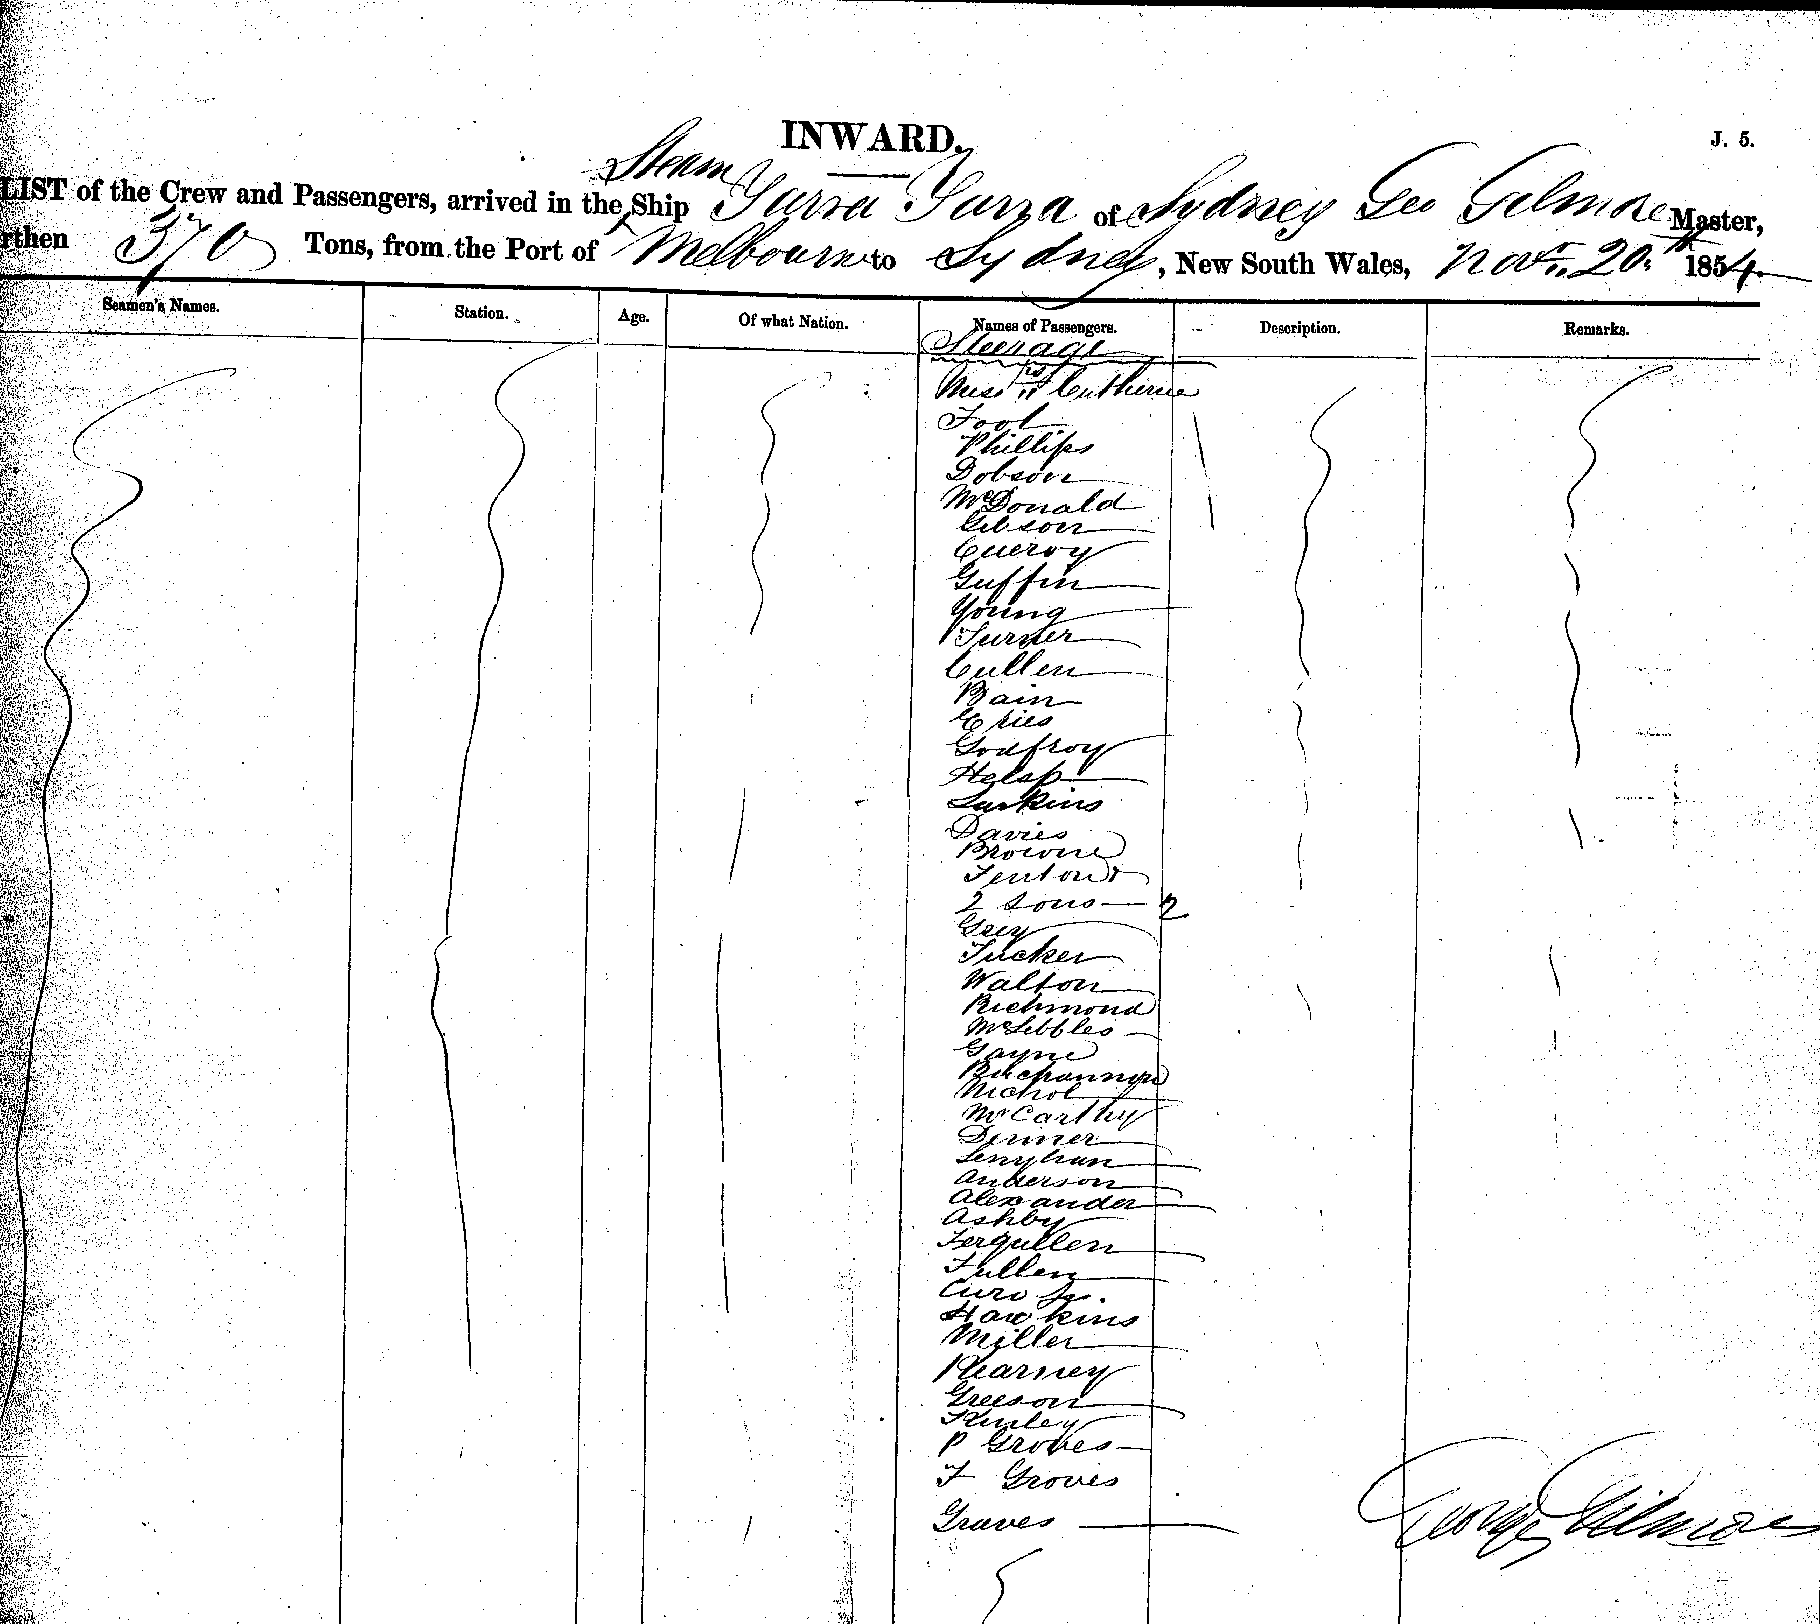 INWARD.
J. 5.
Steam
LIST of the Crew and Passengers, arrived in the Ship Yarra Yarra of Sydney Geo Gilmore Master,
rthen 370 Tons, from the Port of Melbourne to Sydney, New South Wales, Novr. 20th 1854.
Seamen's Names. Station. Age. Of what Nation. Names of Passengers. Description. Remarks.
Steerage
Miss
Foot
Phillips
Dobson
McDonald
Gibson
Gueroy
Guffin
Young
Turner
Cullen
Bain
Godfroy
Larkins
Davies
Browne
Fenton &
2 Sons — 2
Grey
Tucker
Walton
Richmond
Gayne
Buchannon
Nichol
McCarthy
Denner
Lenyhan
Anderson
Alexander
Ashby
Fergullen
Fullen
Hawkins
Miller
Kearney
Greeson
Kinley
P Groves
F Groves
Graves
George Gilmore